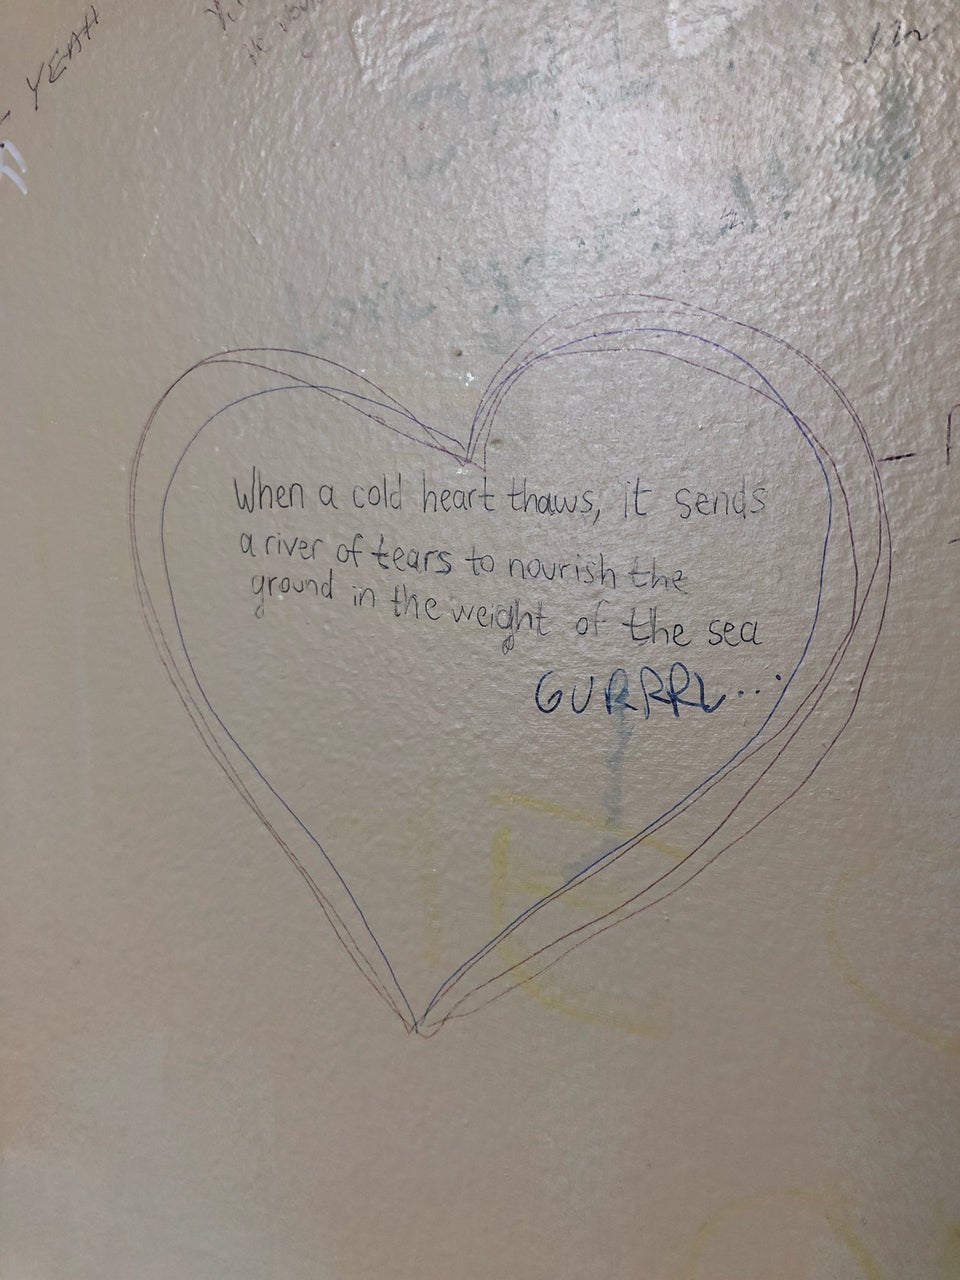 YEAH
When a cold heart thaws, it sends
a river of tears to nourish the
ground in the weight of the sea
GURRRL...